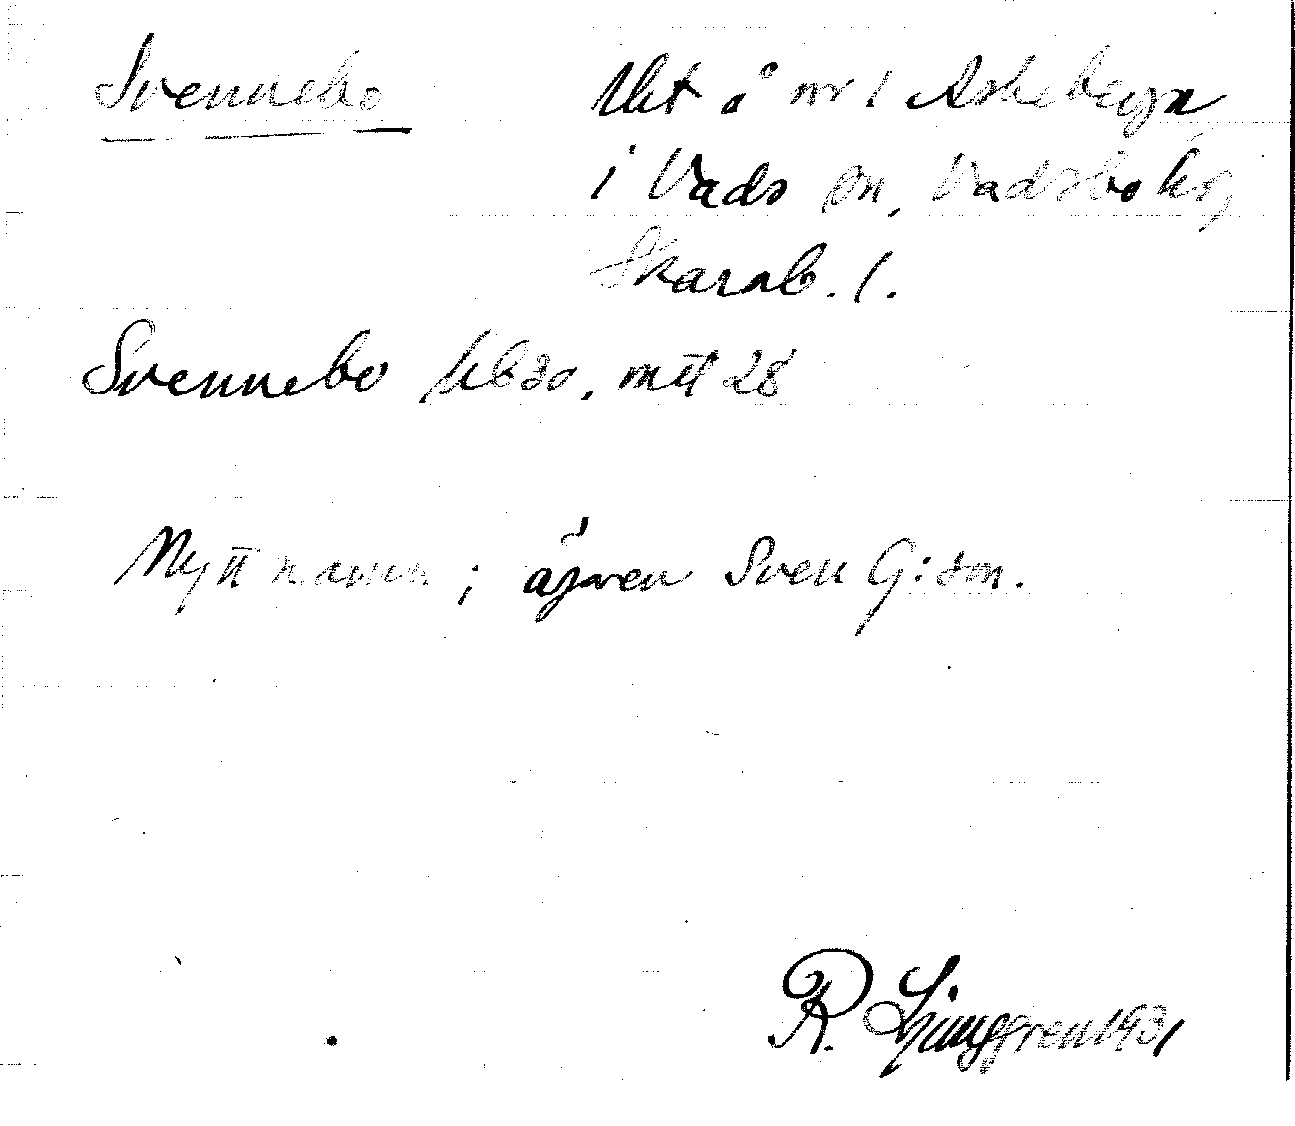 Svennebo
Uht å nr 1 Askeberga
i Vads sn, Vadsbo hd,
Skarab. l.
Svennebo Jb 30, mtl 28
Nytt namn; ägaren Sven G:son.
R. Ljunggren 1931